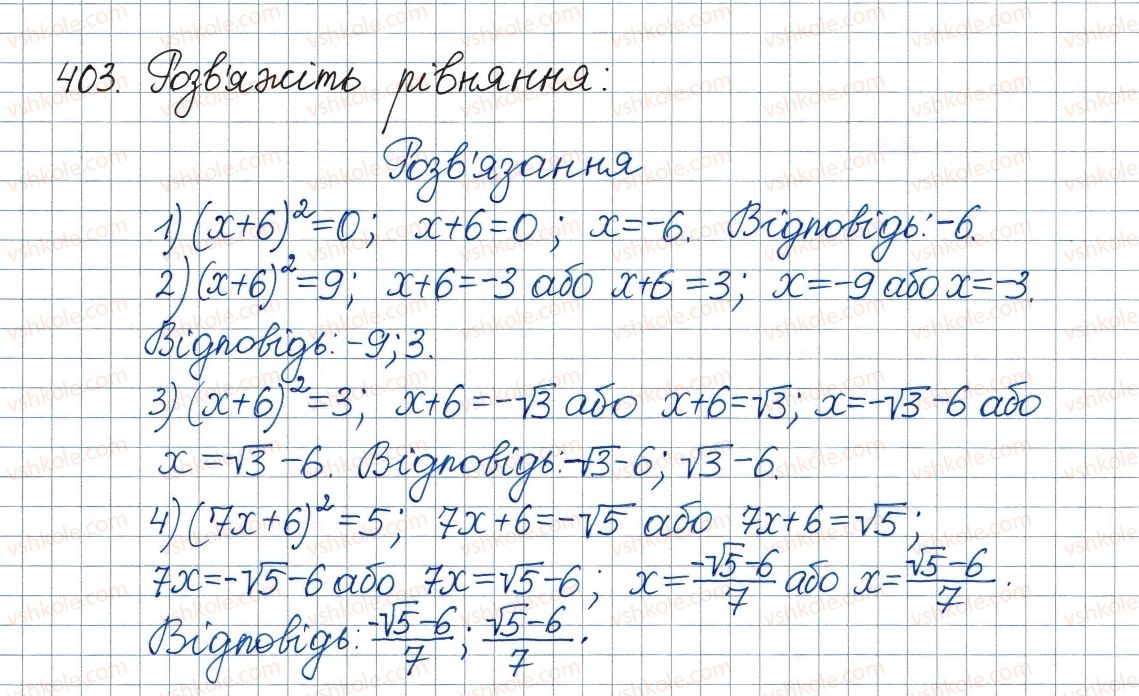 403. Розв'яжіть рівняння:
Розв'язання
1) (x+6)²=0; x+6=0; x=-6. Відповідь: -6.
2) (x+6)²=9; x+6=-3 або x+6=3; x=-9 або x=-3.
Відповідь: -9; 3.
3) (x+6)²=3; x+6=-√3 або x+6=√3; x=-√3-6 або
x=√3-6. Відповідь: -√3-6; √3-6.
4) (7x+6)²=5; 7x+6=-√5 або 7x+6=√5;
7x=-√5-6 або 7x=√5-6; x=(-√5-6)/7 або x=(√5-6)/7.
Відповідь: (-√5-6)/7; (√5-6)/7.
vshkole.com